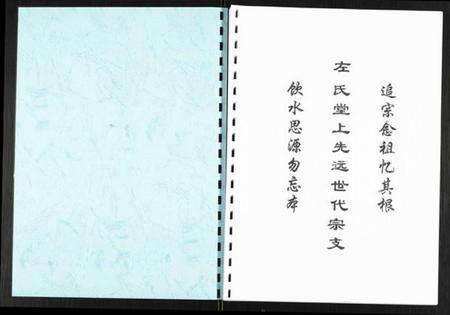 追宗念祖忆其根
左氏堂上先远世代宗支
飲水思源勿忘本